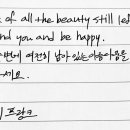 of all the beauty still le
nd you and be happy.
변에 여전히 남아 있는 아름다움을
세요.
프랑크